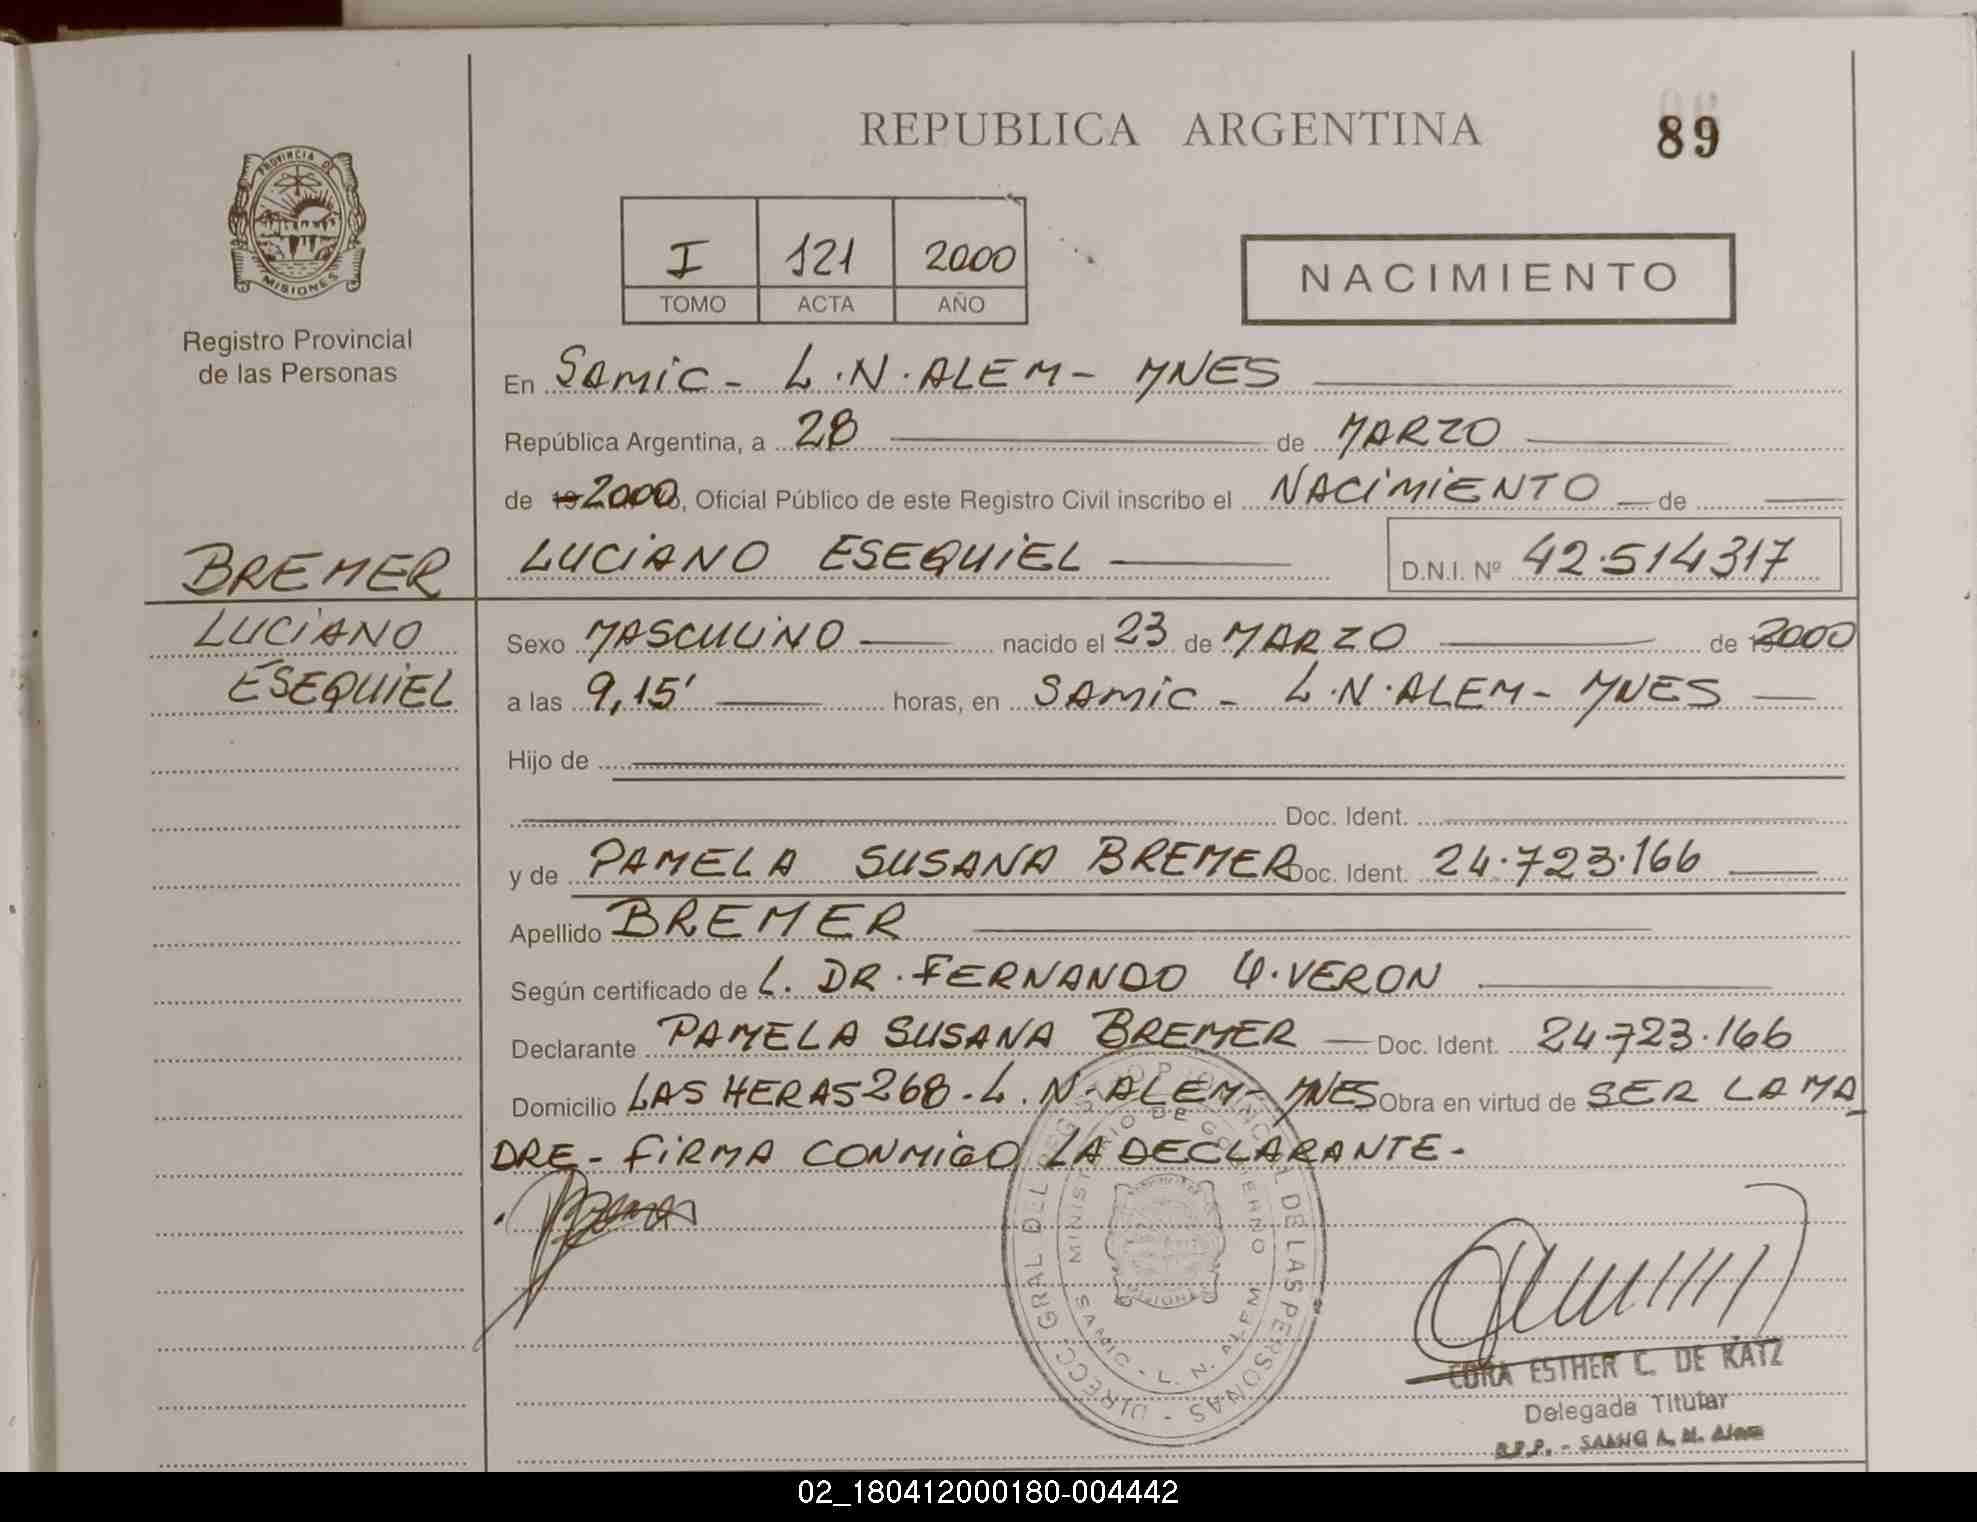 REPUBLICA ARGENTINA
89
PROVINCIA DE
MISIONES
Registro Provincial
de las Personas
I 121 2000
TOMO ACTA AÑO
NACIMIENTO
En SAMIC - L.N. ALEM - MNES
República Argentina, a 28 de MARZO
de 19 2000, Oficial Público de este Registro Civil inscribo el NACIMIENTO de
BREMER
LUCIANO ESEQUIEL
D.N.I. Nº 42.514317
LUCIANO
ESEQUIEL
Sexo MASCULINO nacido el 23 de MARZO de 2000
a las 9,15' horas, en SAMIC - L.N. ALEM - MNES
Hijo de
Doc. Ident.
y de PAMELA SUSANA BREMER Doc. Ident. 24.723.166
Apellido BREMER
Según certificado de L. DR. FERNANDO VERON
Declarante PAMELA SUSANA BREMER Doc. Ident. 24.723.166
Domicilio LAS HERAS 268 - L.N. ALEM - MNES Obra en virtud de SER LA MA
DRE - FIRMA CONMIGO LA DECLARANTE.
DIRECC. GRAL DEL REGISTRO PROVINCIAL DE LAS PERSONAS
MINISTERIO DE GOBIERNO
SAMIC - L. N. ALEM
CORA ESTHER C. DE KATZ
Delegada Titular
R.P.P. - SAMIC L. N. Alem
02_180412000180-004442